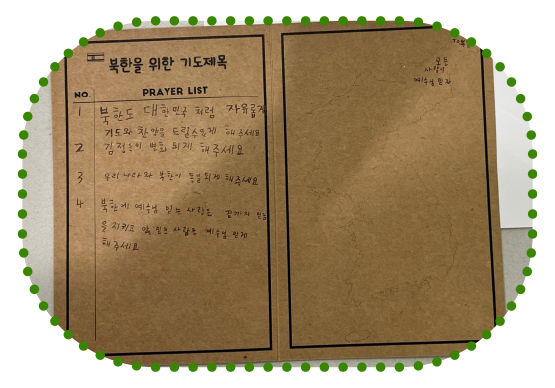 북한을 위한 기도제목
NO. PRAYER LIST
1 북한도 대한민국 처럼 자유롭게
기도와 찬양을 드릴수있게 해주세요
2 김정은이 변화 되게 해주세요
3 우리나라와 북한이 통일되게 해주세요
4 북한에 예수님 믿는 사람은 끝까지 믿음
을 지키고 안 믿는 사람은 예수님 믿게
해주세요
모든
사람이
예수님 믿자